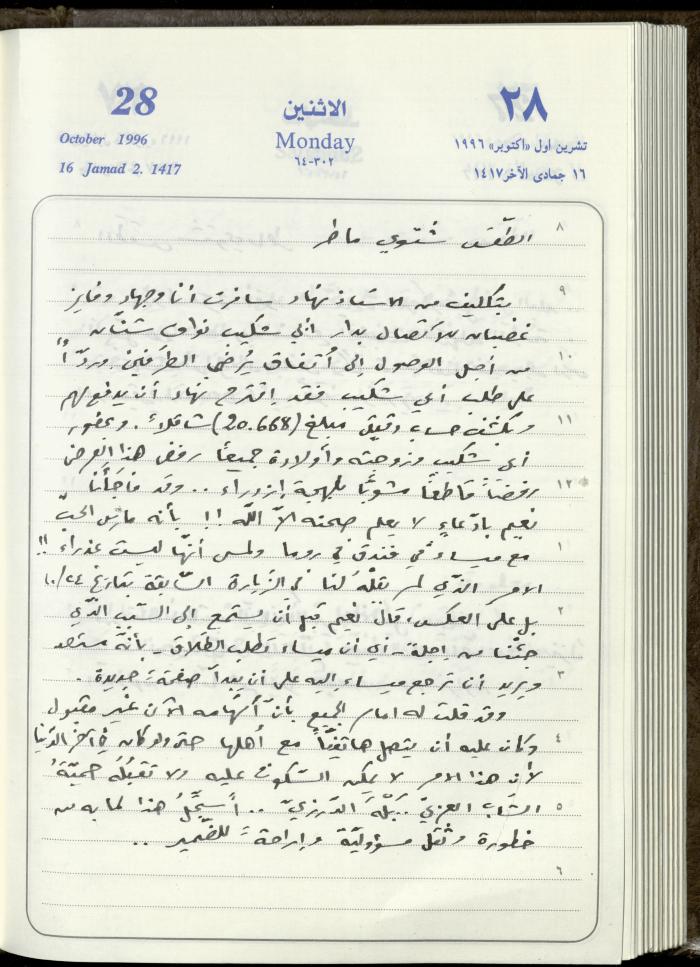 28
October 1996
16 Jamad 2. 1417
الاثنين
Monday
٦٤-٣٠٢
٢٨
تشرين اول «اكتوبر» ١٩٩٦
١٦ جمادى الآخر ١٤١٧
٨
الطقس شتوي ماطر
٩
بتكليف من الاستاذ نهاد سافرت أنا وجهاد وفايز
غضبان للاتصال بدار ابي شكيب نواف شنّان
١٠
من أجل الوصول إلى اتفاق يُرضي الطرفين وردّاً
على طلب أبي شكيب فقد اقترح نهاد أن يدفع لهم
١١
وبكشف حساب دقيق مبلغ (20.668) شاقلاً. وبحضور
أبي شكيب وزوجته وأولاده جميعاً رفض هذا العرض
١٢
رفضاً قاطعاً مشوباً بلهجة إزدراء .. وقد فاجأنا
نعيم بادّعاءٍ لا يعلم صحته الاّ اللّه !! بأنه مارس الحبّ
١
مع ميساء في فندق في روما ولمس أنّها ليست عذراء !!
الامر الذّي لم يقلهُ لنا في الزّيارة السّابقة بتاريخ ١٠/٢٤
٢
بل على العكس، قال نعيم قبل أن يستمع إلى السّبب الذّي
جئنا من اجله - أي أن ميساء تطلب الطّلاق - بأنّه مستعد
٣
ويريد أن ترجع ميساء إليه على أن يبدآ صفحةً جديدة.
وقد قلت له امام الجميع بأنّ اتّهامه الآن غير مقبول
٤
وكان عليه أن يتصل هاتفيّاً مع أهلها حتى ولو كان في آخر الدّنيا
لأن هذا الامر لا يمكن السّكوت عليه ولا تقبلهُ حميّةُ
٥
الشّاب العربيّ .. بَلْهَ الدّرزيّ .. أسجّل هذا لما به من
خطورة وثقل مسؤوليّة وإراحةً للضّمير ..
٦